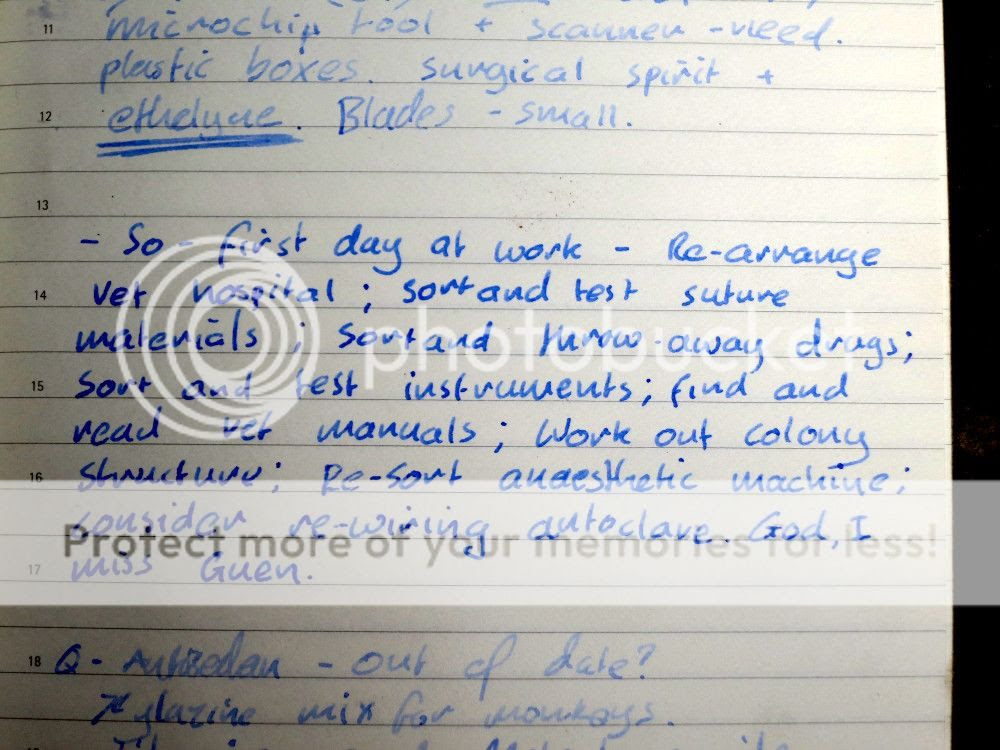 11 microchip tool + scanner - need.
plastic boxes. surgical spirit +
12 Blades - small.
13
- So - first day at work - Re-arrange
14 vet hospital ; sort and test suture
materials ; sort and throw-away drugs;
photobucket
15 sort and test instruments; find and
read vet manuals ; Work out colony
16 structure; Re-sort anaesthetic machine;
consider re-wiring autoclave. God, I
Protect more of your memories for less!
17 miss Guen.
18 Q - Antisedan - out of date?
Xylazine mix for monkeys.